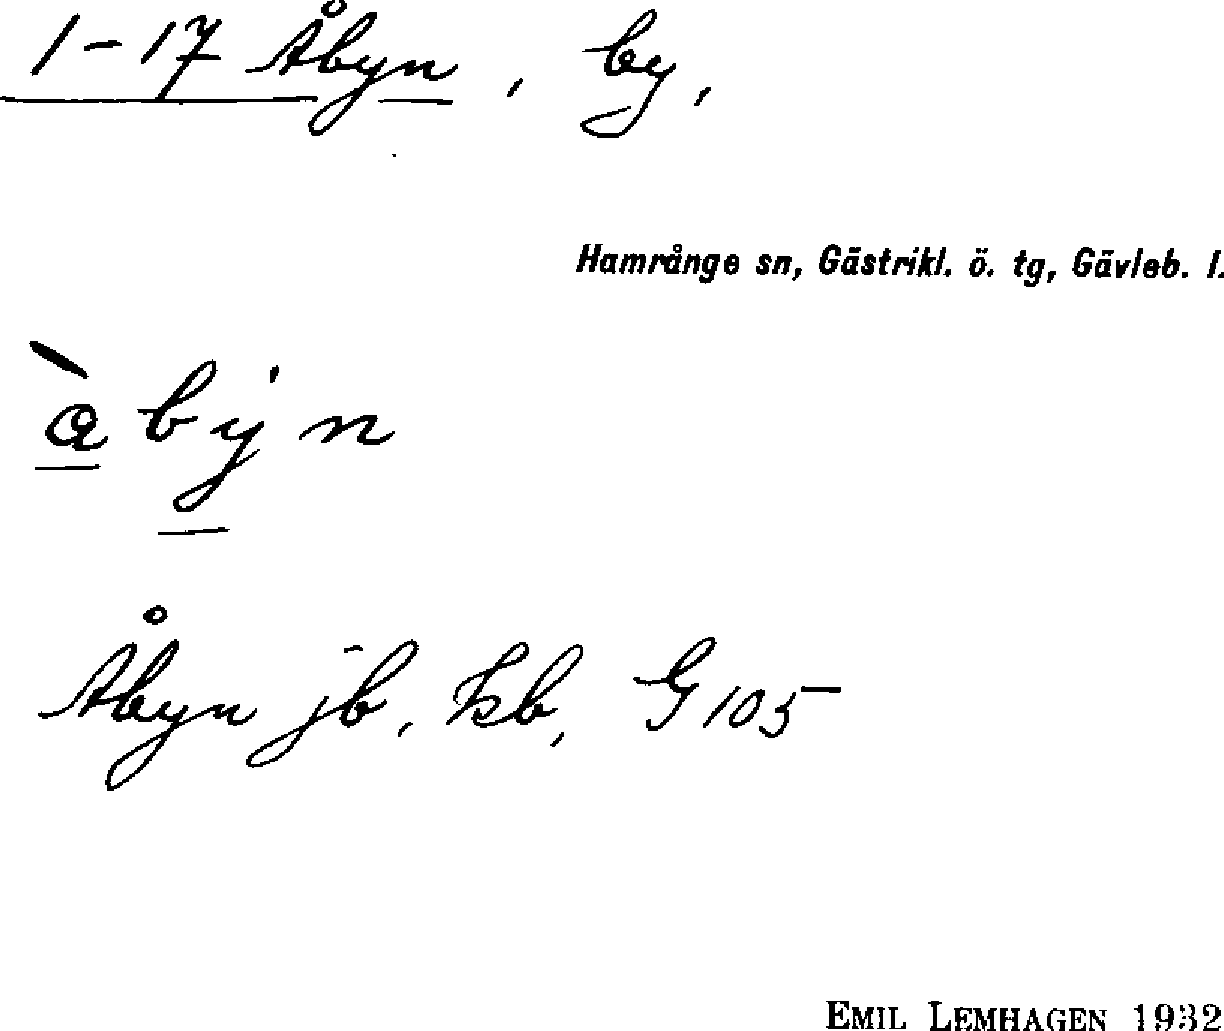 1-17 Åbyn, by,
Hamrånge sn, Gästrikl. ö. tg, Gävleb. l.
àbyn
Åbyn jb, kb, G 105
EMIL LEMHAGEN 1932